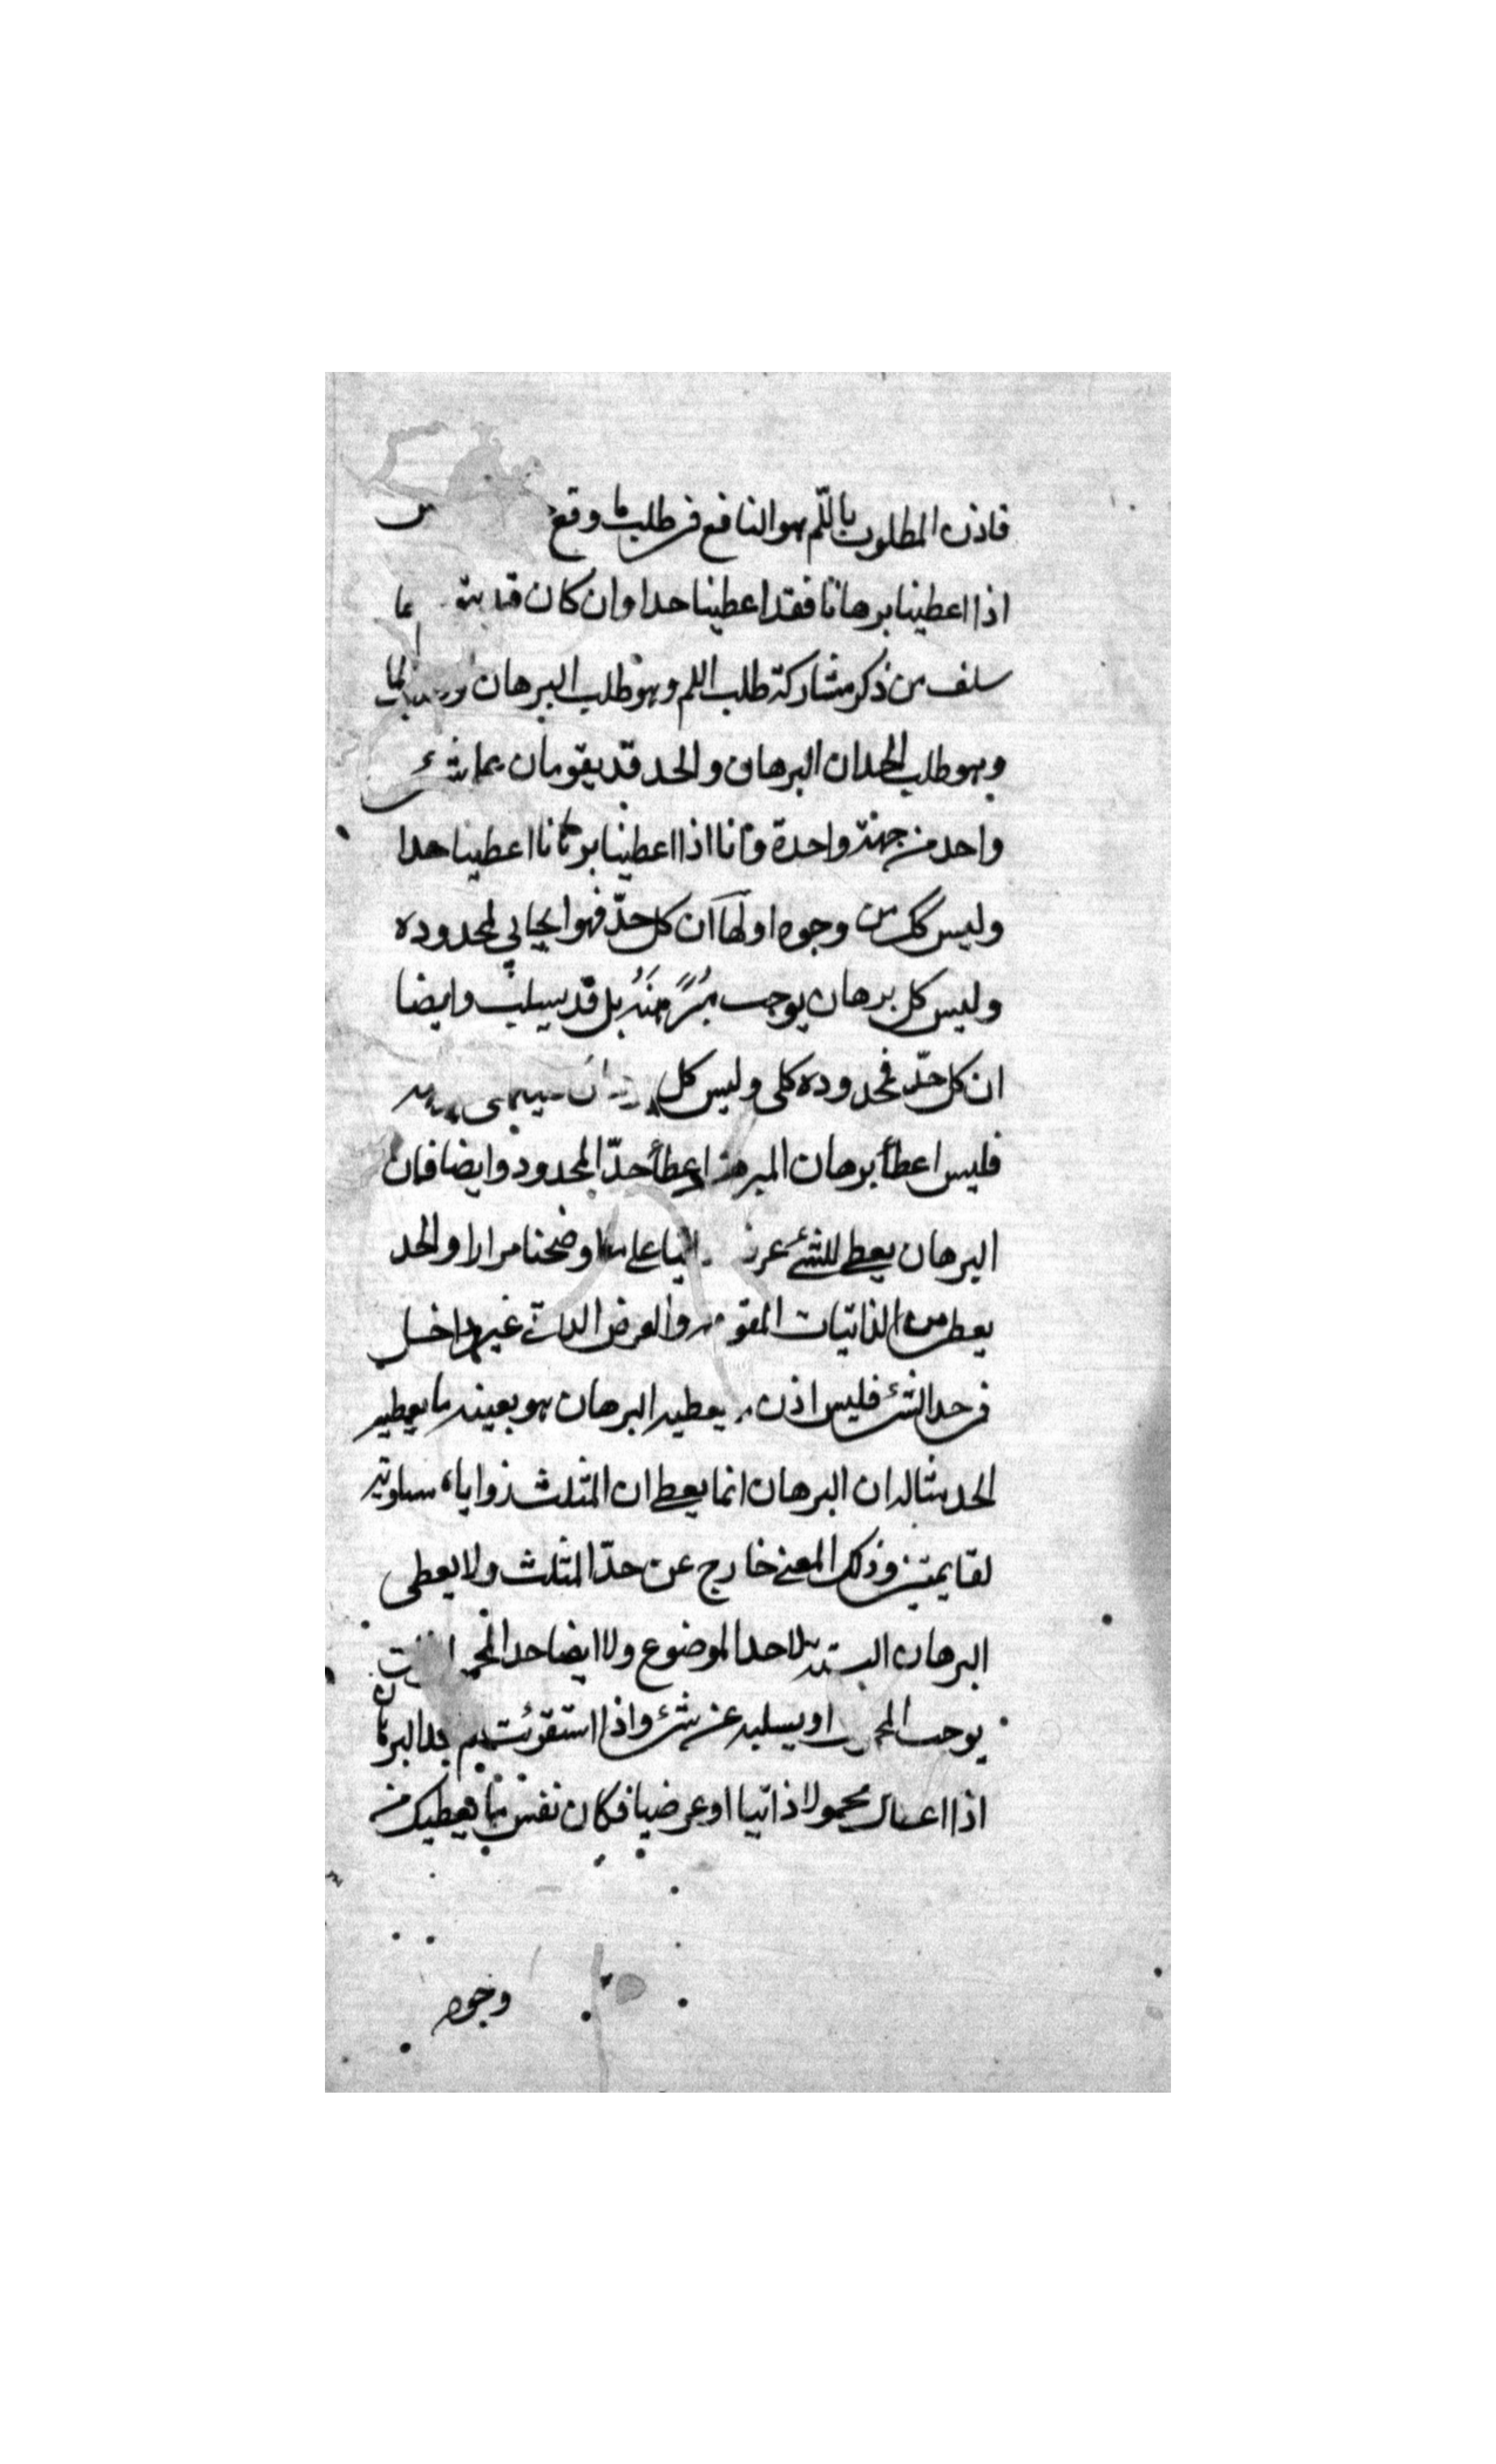 فاذن المطلوب باللّم هو النافع فى طلب ما وقع
اذا اعطينا برهانا فقد اعطينا حدا وان كان قد
سلف من ذكر مشاركة طلب اللم وهو طلب البرهان
وهو طلب الحد ان البرهان والحد قد يقومان بما شئ
واحد من جهة واحدة وانا اذا اعطينا برهانا اعطينا حدا
وليس كك من وجوه اولها ان كل حدّ فهو ايجابي لمحدوده
وليس كل برهان يوجب بل قد يسلب وايضا
ان كل حدّ فمحدوده كلى وليس كل
فليس اعطأ برهان المبرهن اعطأ حدّ المحدود وايضا فان
البرهان يعطى للشئ على ما اوضحنا مرارا والحد
يعطى من الذاتيات المقومة والعرض الذاتى غير داخل
فى حد الشئ فليس اذن يعطيه البرهان هو بعينه ما يعطيه
الحد مثاله ان البرهان انما يعطى ان المثلث زواياه مساوية
لقايمتين وذلك المعنى خارج عن حدّ المثلث ولا يعطى
البرهان البتة لا حد الموضوع ولا ايضا حد
يوجب او يسلبه عن شئ واذا استقرئت البرهان
اذا محمولا ذاتيا او عرضيا فكان نفس ما يعطيك من
وجوه